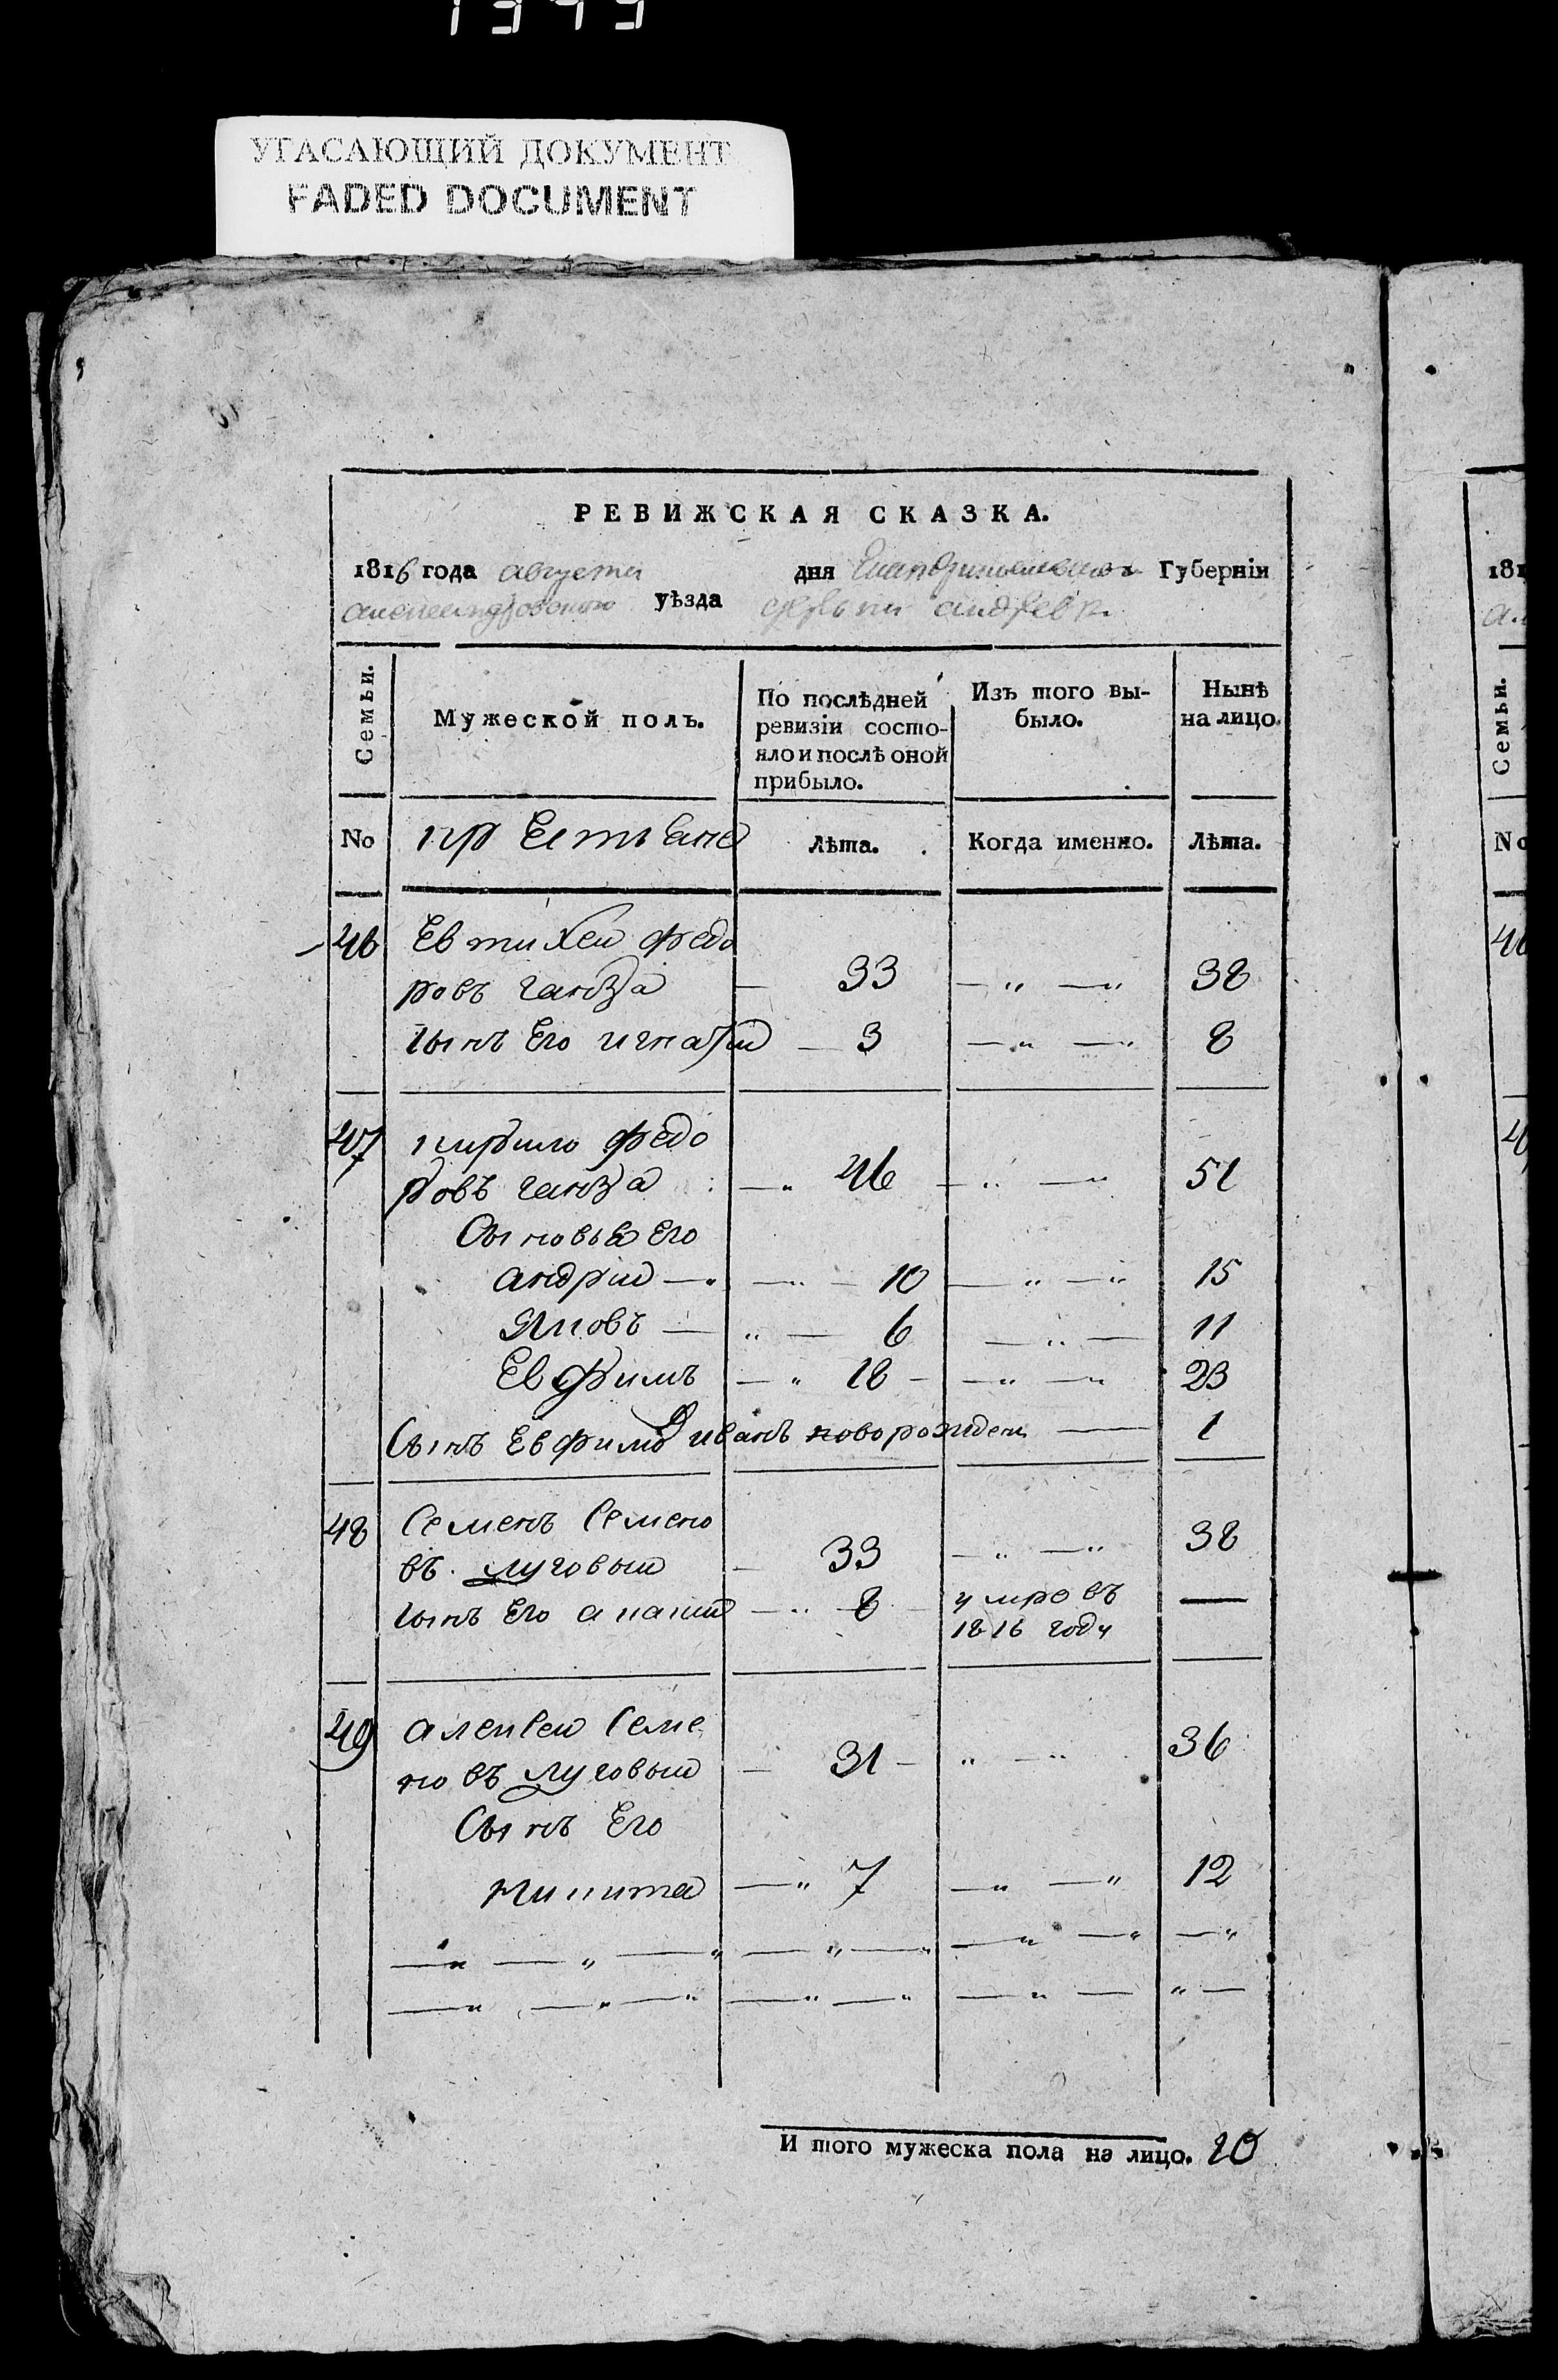 1399
УГАСАЮЩИЙ ДОКУМЕНТ
FADED DOCUMENT
РЕВИЖСКАЯ СКАЗКА.
1816 года августа дня Екатеринославской Губернiи
александровского уѣзда
Семьи. Мужеской полъ. По послѣдней ревизiи состояло и послѣ оной прибыло. Изъ того выбыло. Нынѣ на лицо.
No крестьяне Лѣта. Когда именно. Лѣта.
46 Евтихеи Федо
ровъ ганжа — 33 — „ — „ 38
сынъ Его игнатiи — 3 — „ — „ 8
47 кирило Федо
ровъ ганжа — „ 46 — „ — „ 51
Сыновья Его
андрiи — „ — „ — 10 — „ — „ 15
Яковъ — „ — 6 — „ — 11
Евфимъ — „ 18 — — „ — „ 23
Сынъ Евфима иванъ новорожден — 1
48 Семенъ Семено
въ луговыи — 33 — „ — „ 38
сынъ Его — „ — 8 — умре въ —
1816 году
49 алексеи Семе
новъ луговыи — 31 — „ — „ 36
Сынъ Его
никита — „ 7 — „ — „ 12
— „ — „ — „ — „ — „ — „ — „ — „
— „ — „ — „ — „ — „ — „ — „ —
И того мужеска пола на лицо. 10
181
а.
Семьи.
No
46
47